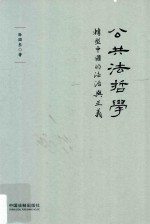 公共法哲學
轉型中國的法治與正義
張國旺 著
中国法制出版社